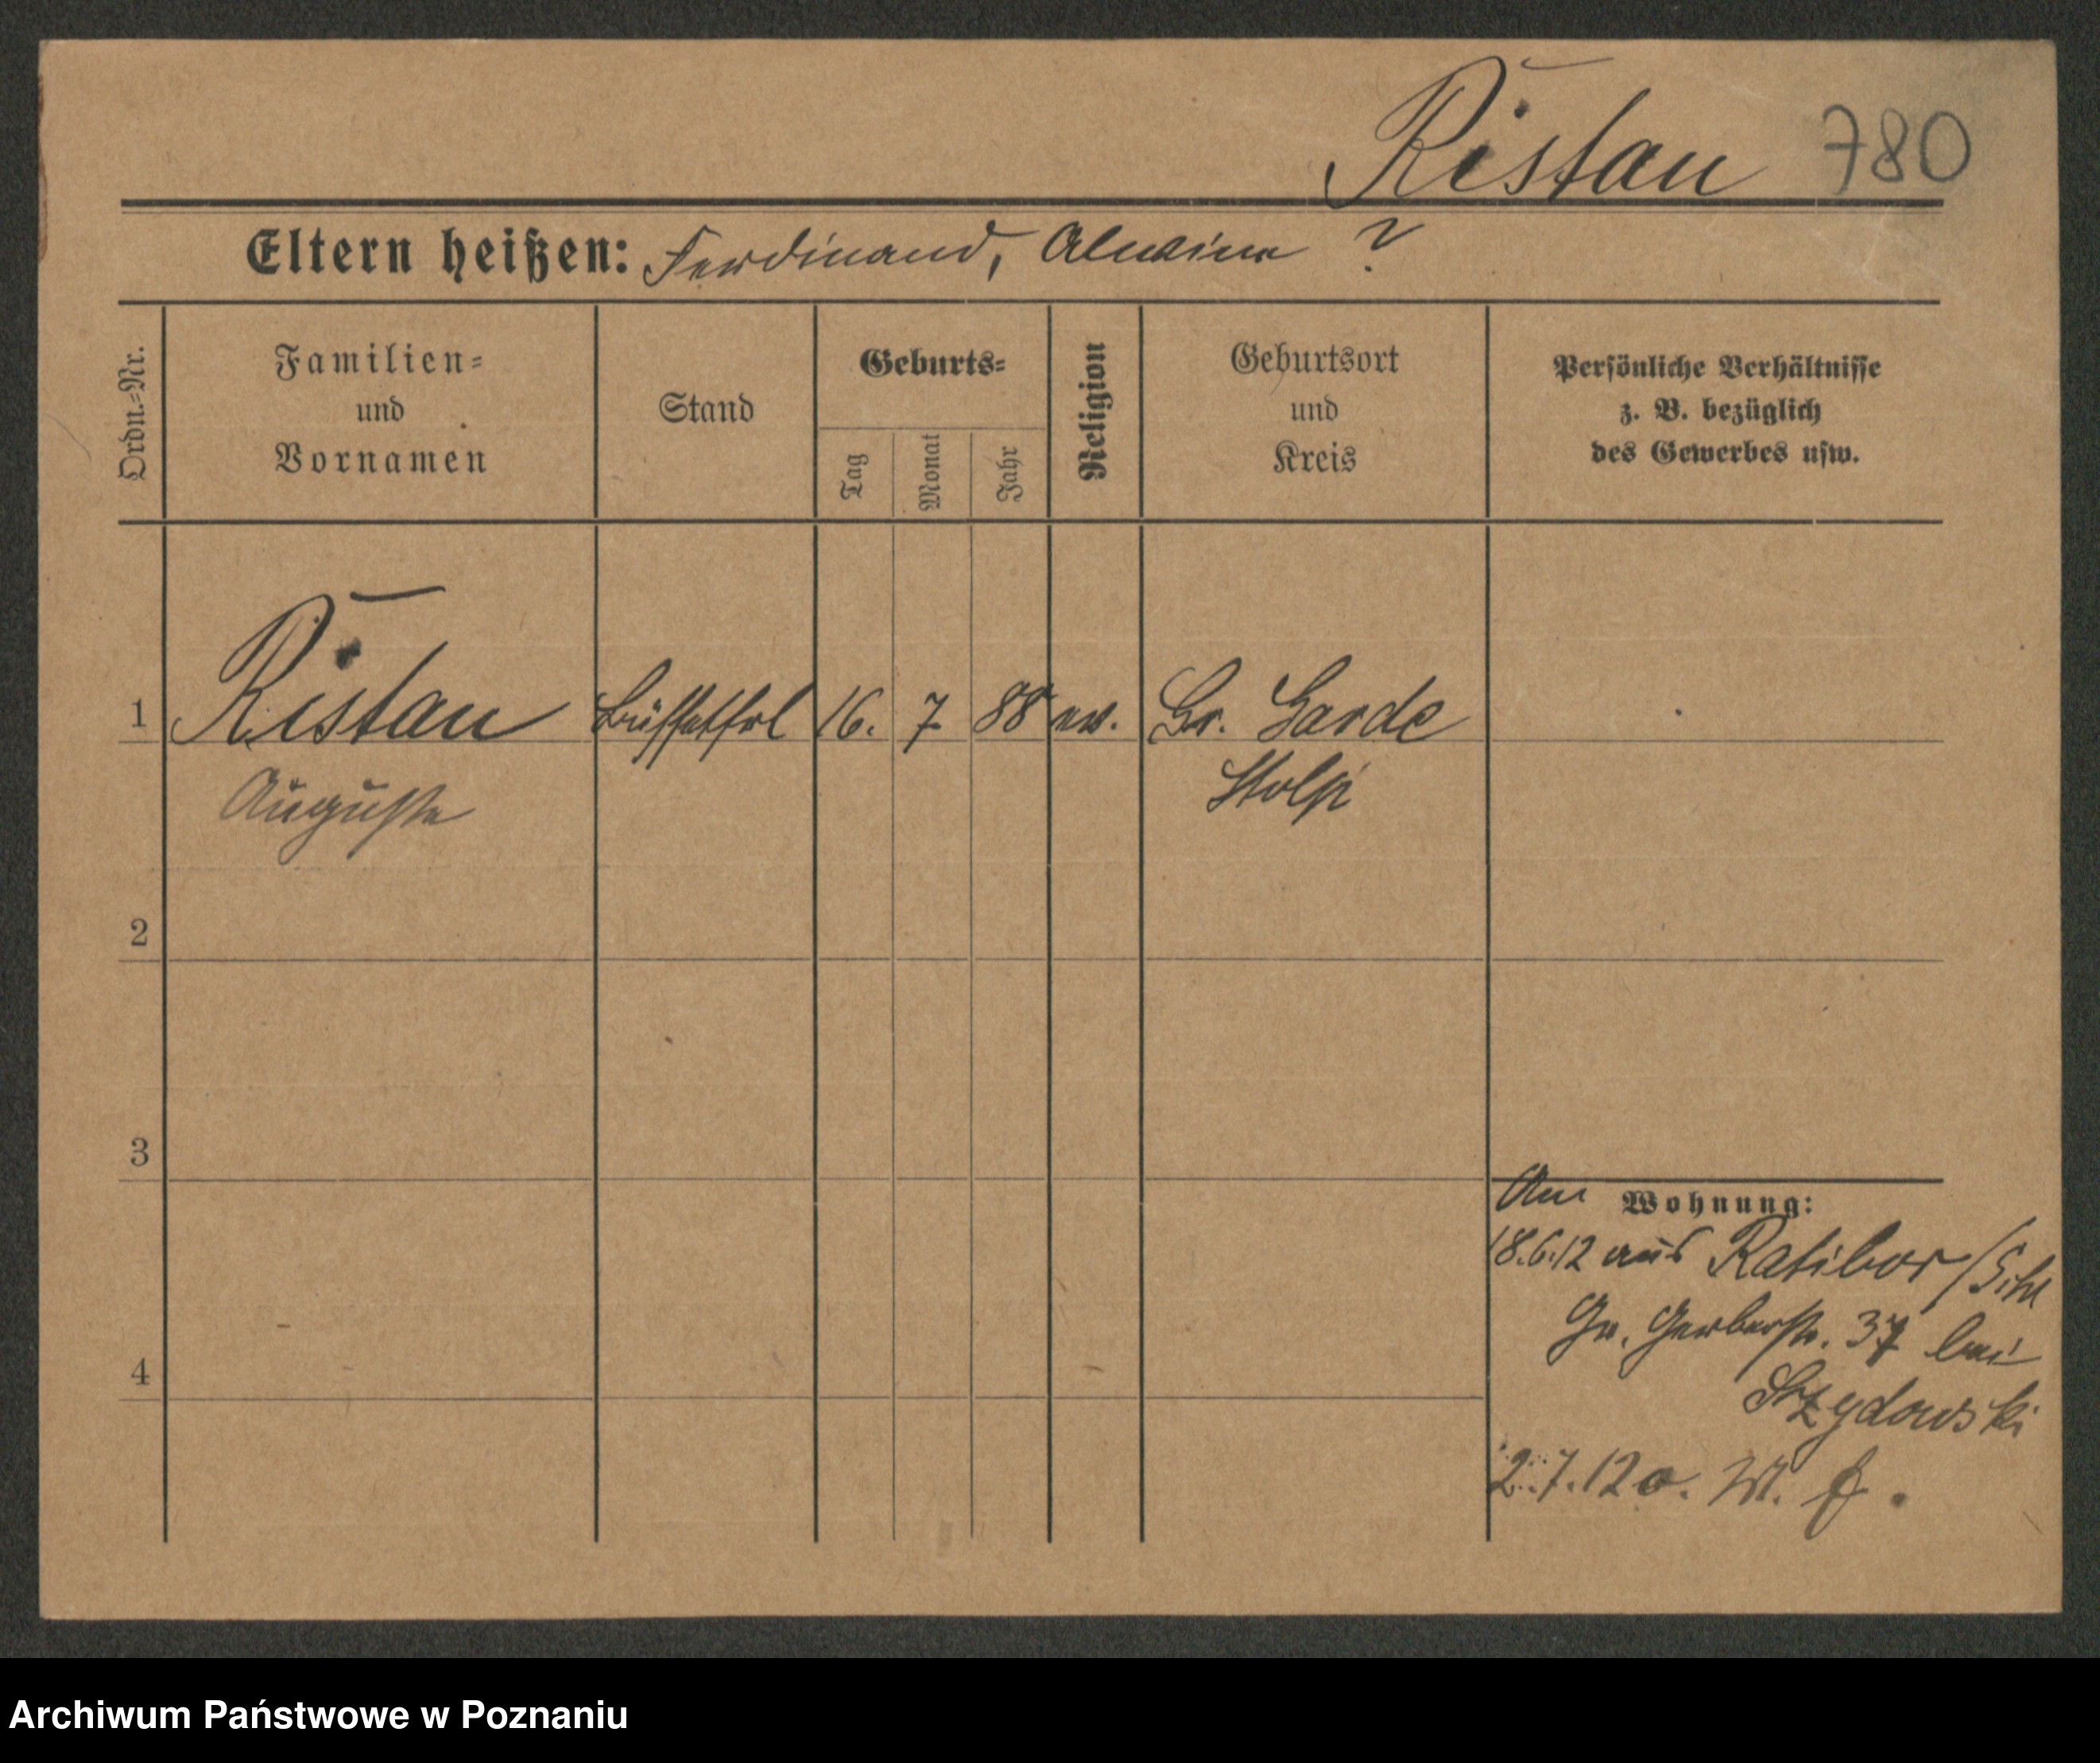 Ristau 780
Eltern heißen: Ferdinand, Alwine ?
Ordn.-Nr.
Familien-
und
Vornamen
Stand
Geburts-
Tag
Monat
Jahr
Religion
Geburtsort
und
Kreis
Persönliche Verhältnisse
z. B. bezüglich
des Gewerbes usw.
1 Ristau Büffetfrl 16. 7 88 ev. Gr. Garde
Auguste Stolp
2
3
4
An Wohnung:
18.6.12 aus Ratibor/Schl
Gr. Gerberstr. 37 bei
Szydowski
2.7.12 o. W. f.
Archiwum Państwowe w Poznaniu